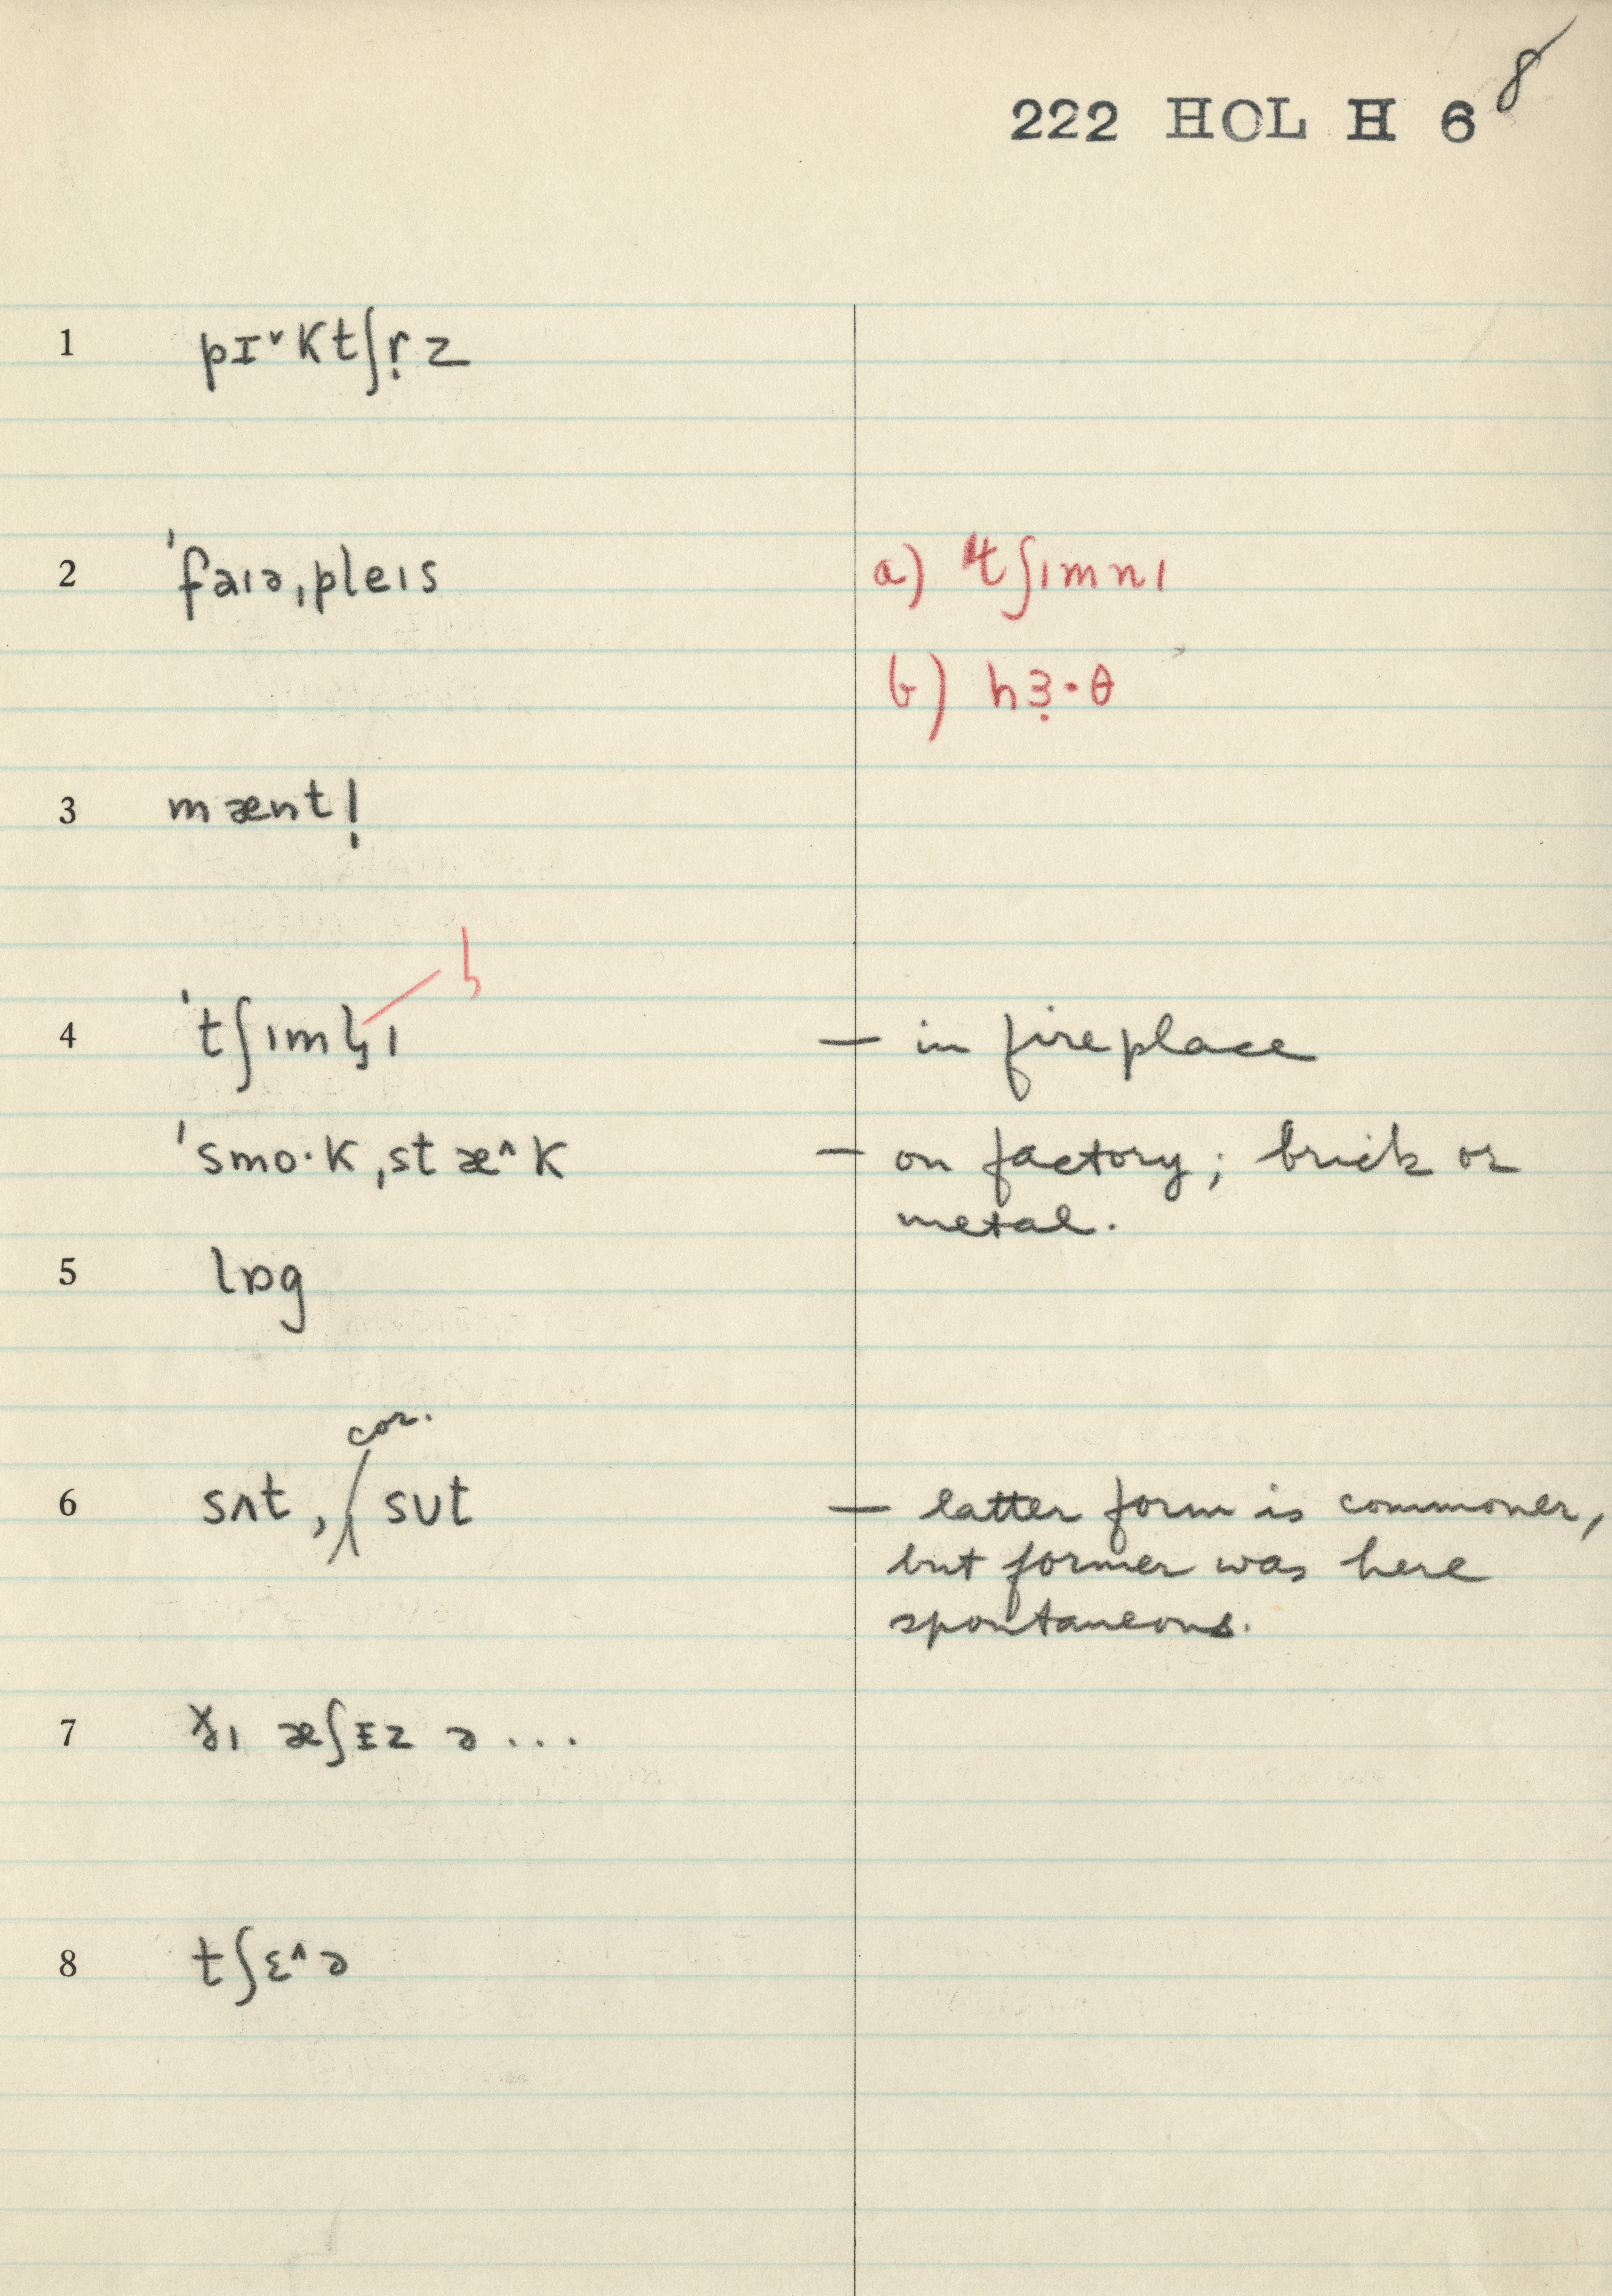 8
222 HOL H 6
1 pɪ˅ktʃr̩z
2 ˈfaɪə,pleɪs a) tʃɪmnɪ
b) hɜ̣·θ
3 mænt!
4 ˈtʃɪmɪ — in fireplace
ˈsmo·k,stæ^k — on factory; brick or
metal.
5 lɒg
cor.
6 sʌt, / sʊt — latter form is commoner,
but former was here
spontaneous.
7 ɪ æʃɪz ə ...
8 tʃɛ^ə